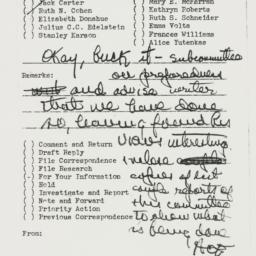 ( ) Jack Carter
( ) Ruth N. Cohen
( ) Elizabeth Donahue
( ) Julius C.C. Edelstein
( ) Stanley Karson
( ) Mary E. McFarren
( ) Kathryn Roberts
( ) Ruth S. Schneider
( ) Emma Volts
( ) Frances Williams
( ) Alice Yutenkas
Okay, buck it - subcommittee
Remarks: on
and advise writer
that we have done
so, having found his
views interesting.
( ) Comment and Return
( ) Draft Reply
( ) File Correspondence
( ) File Research
( ) For Your Information
( ) Hold
( ) Investigate and Report
( ) Note and Forward
( ) Priority Action
( ) Previous Correspondence
From:
copies of
reports of
this committee
to show what
is being done